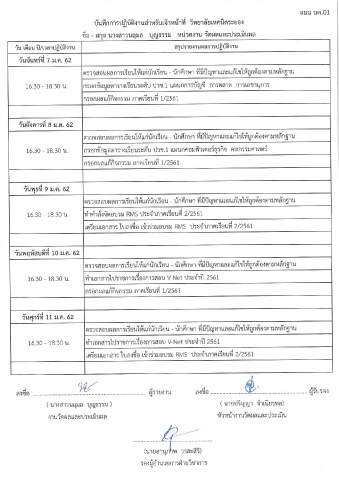 แบบ นค.01
บันทึกการปฏิบัติงานสำหรับเจ้าหน้าที่ วิทยาลัยเทคนิคระยอง
ชื่อ - สกุล นางสาวนฤมล บุญธรรม หน่วยงาน วัดผลและประเมินผล
วัน เดือน ปี/เวลาปฏิบัติงาน สรุปรายงานผลการปฏิบัติงาน
วันจันทร์ที่ 7 ม.ค. 62
ตรวจสอบผลการเรียนให้แก่นักเรียน - นักศึกษา ที่มีปัญหาและแก้ไขให้ถูกต้องตามหลักฐาน
16.30 - 18.30 น. กรอกข้อมูลตารางเรียนระดับ ปวช.1 แผนกการบัญชี การตลาด การเลขานุการ
กรอกผลแก้กิจกรรม ภาคเรียนที่ 1/2561
วันอังคารที่ 8 ม.ค. 62
ตรวจสอบผลการเรียนให้แก่นักเรียน - นักศึกษา ที่มีปัญหาและแก้ไขให้ถูกต้องตามหลักฐาน
16.30 - 18.30 น. กรอกข้อมูลตารางเรียนระดับ ปวช.1 แผนกคอมพิวเตอร์ธุรกิจ คหกรรมศาสตร์
กรอกผลแก้กิจกรรม ภาคเรียนที่ 1/2561
วันพุธที่ 9 ม.ค. 62
ตรวจสอบผลการเรียนให้แก่นักเรียน - นักศึกษา ที่มีปัญหาและแก้ไขให้ถูกต้องตามหลักฐาน
16.30 - 18.30 น. ทำคำสั่งจัดอบรม RMS ประจำภาคเรียนที่ 2/2561
เตรียมเอกสาร ใบลงชื่อ เข้าร่วมอบรม RMS ประจำภาคเรียนที่ 2/2561
วันพฤหัสบดีที่ 10 ม.ค. 62
ตรวจสอบผลการเรียนให้แก่นักเรียน - นักศึกษา ที่มีปัญหาและแก้ไขให้ถูกต้องตามหลักฐาน
16.30 - 18.30 น. ทำเอกสารไปราชการเรื่องการสอบ V-Net ประจำปี 2561
กรอกผลแก้กิจกรรม ภาคเรียนที่ 1/2561
วันศุกร์ที่ 11 ม.ค. 62
ตรวจสอบผลการเรียนให้แก่นักเรียน - นักศึกษา ที่มีปัญหาและแก้ไขให้ถูกต้องตามหลักฐาน
16.30 - 18.30 น. ทำเอกสารไปราชการเรื่องการสอบ V-Net ประจำปี 2561
เตรียมเอกสาร ใบลงชื่อ เข้าร่วมอบรม RMS ประจำภาคเรียนที่ 2/2561
ลงชื่อ ผู้รายงาน ลงชื่อ ผู้รับรอง
( นางสาวนฤมล บุญธรรม ) ( นายปริญญา
งานวัดผลและประเมินผล หัวหน้างานวัดผลและประเมิน
รองผู้อำนวยการฝ่ายวิชาการ